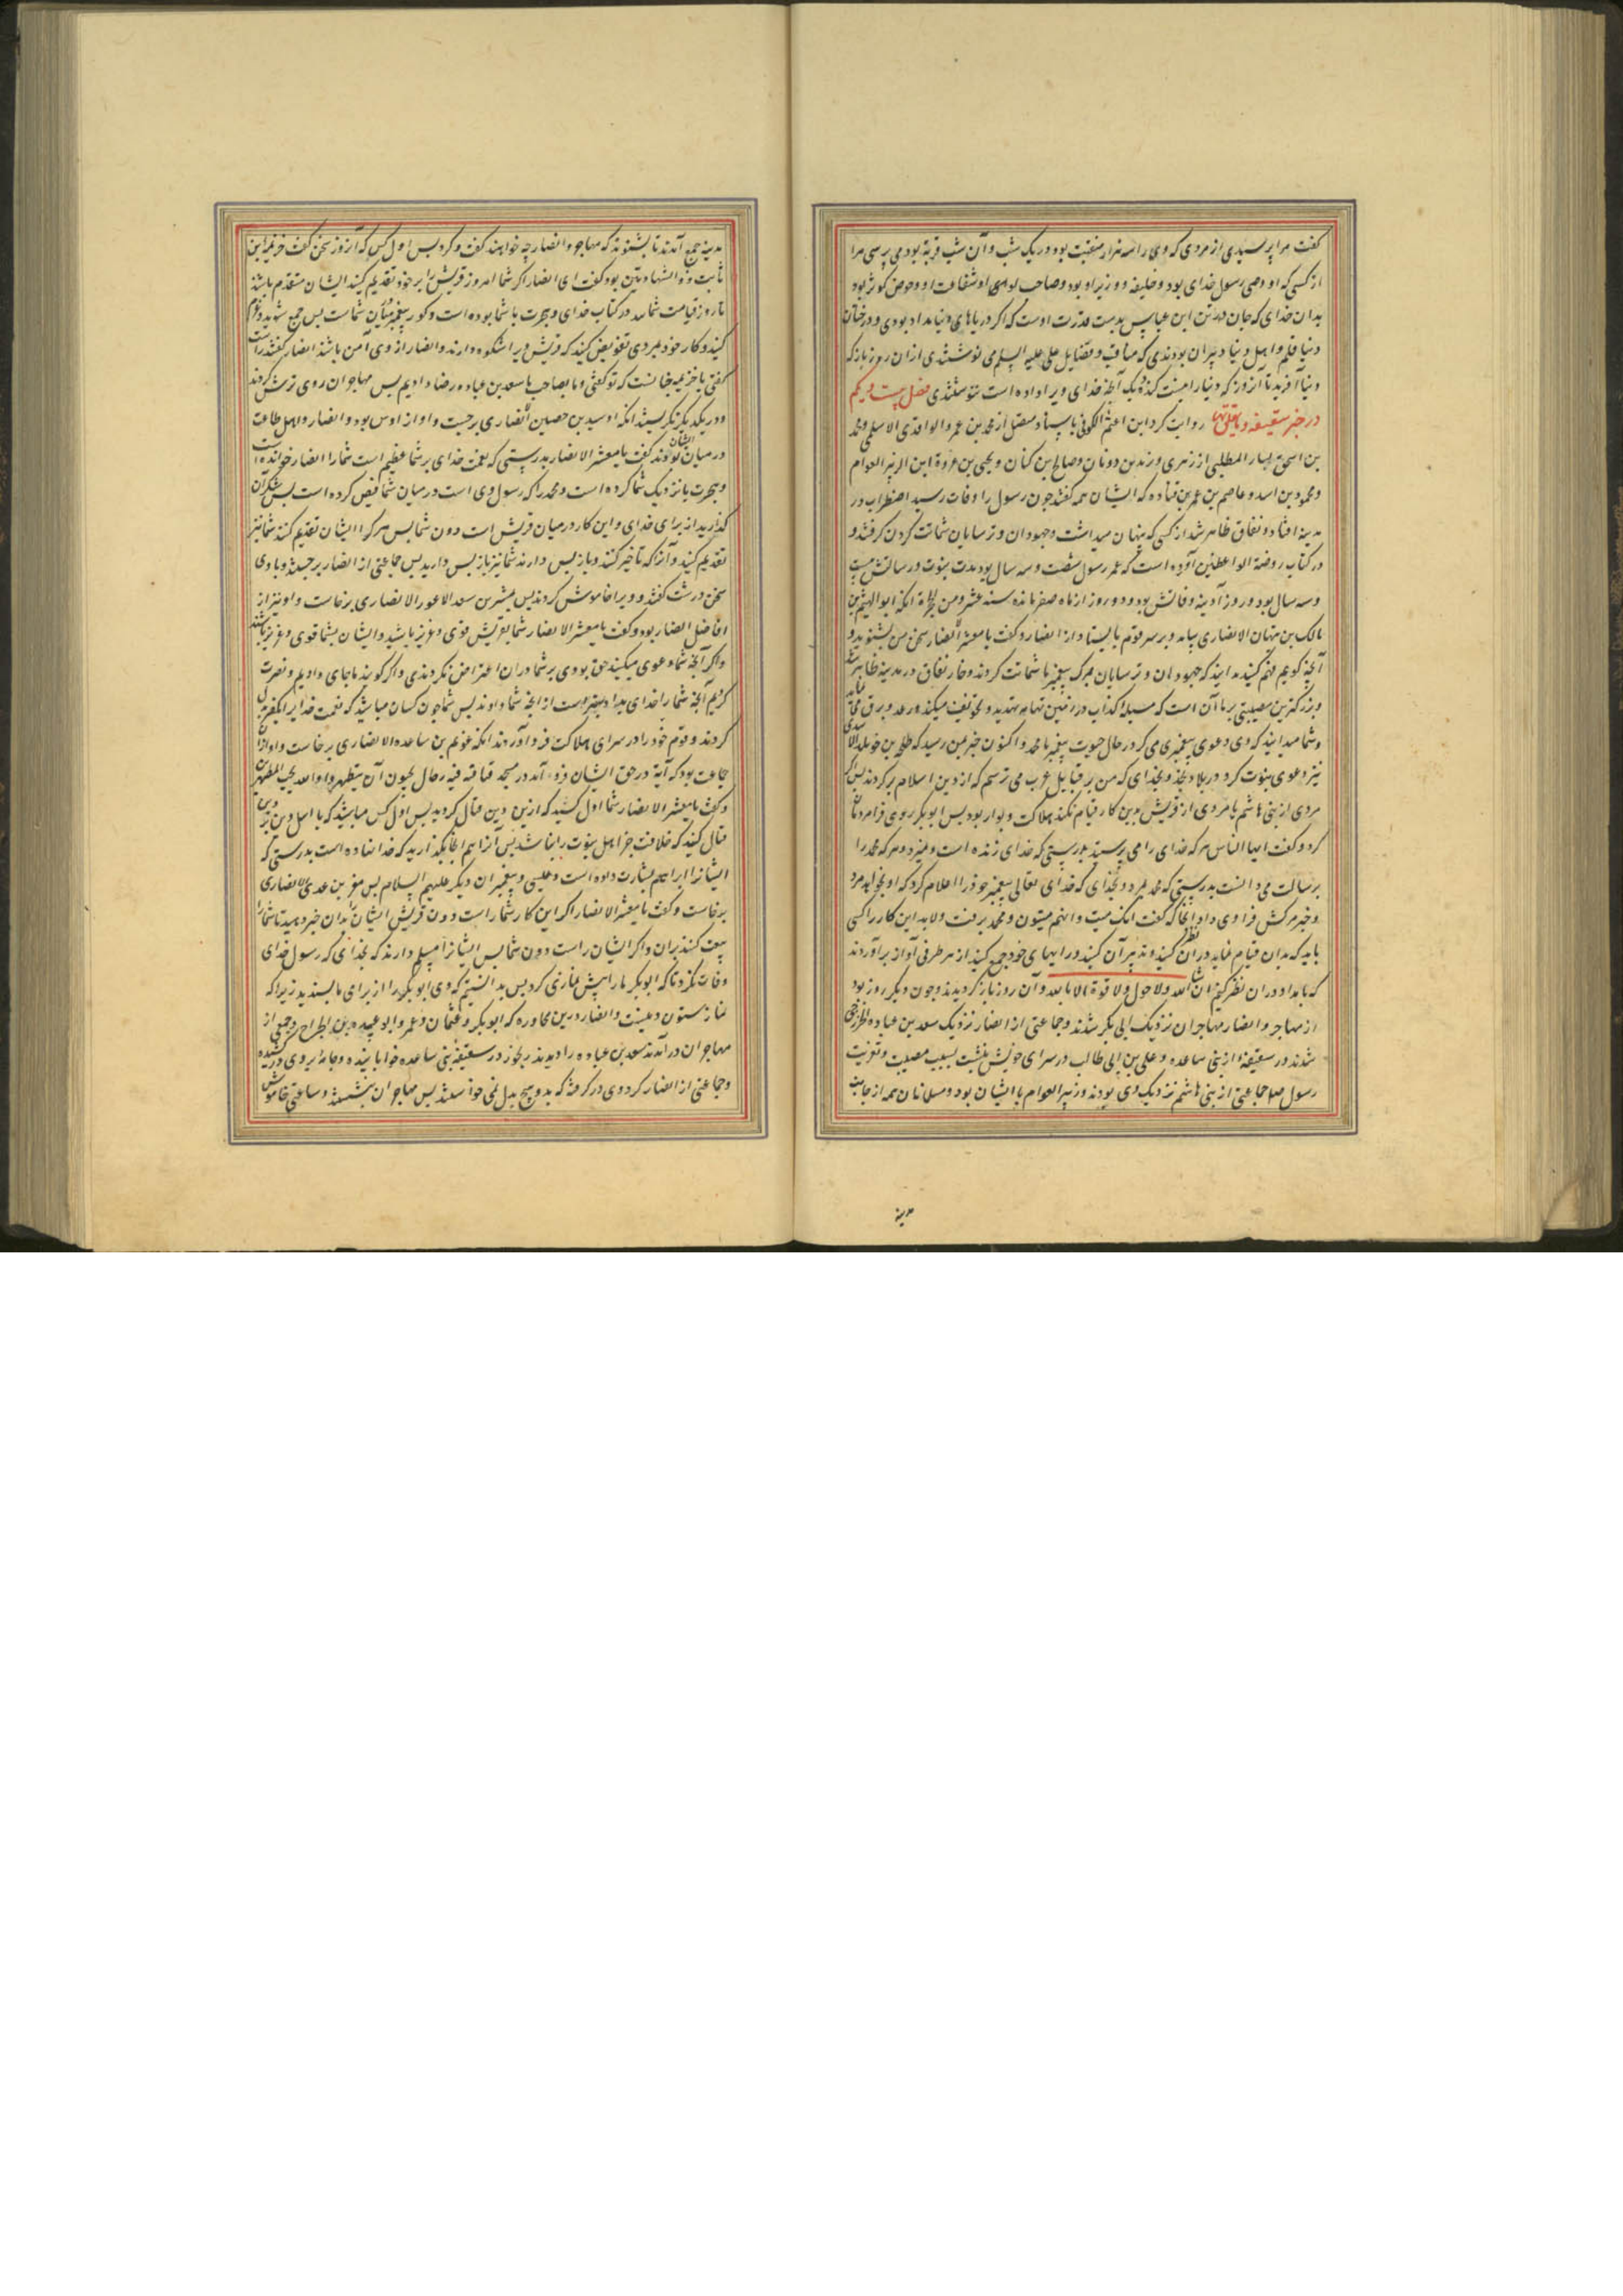 گفت مرا پرسیدی از مردی که وی را سه هزار منقبت بود در یک شب و آن شب قربة بود می پرسی مرا
از کسی که او وصی رسول خدای بود و خلیفه و وزیر او بود و صاحب لوای او شفاعت او و حوض کوثر بود
بدان خدای که جان در تن ابن عباس بدست قدرت اوست که اگر دریاهای دنیا مداد بودی و درختان
دنیا قلم و اهل دنیا دبیران بودندی که مناقب و فضایل علی علیه السلم می نوشتندی از آن روز باز که
دنیا آفرید تا آن روز که دنیا را نیست کند یک آنچه خدای ویرا داده است نتوانستندی فصل بیست و یکم
در خبر سقیفه روایت کرد ابن اعثم الکوفی باسناد متصل از محمد بن عمر و الواقدی الاسلمی و محمد
بن اسحق یسار المطلبی از زهری و زید بن رومان و صالح بن کیسان و یحیی بن عروة ابن الزبیر العوام
و محمود بن اسد و عاصم بن عمر بن قتاده که ایشان همه گفتند چون رسول را وفات رسید اضطراب در
مدینه افتاد و نفاق ظاهر شد از کسی که پنهان میداشت و جهودان و ترسایان شماتت کردن گرفتند و
در کتاب روضة الواعظین آورده است که عمر رسول شصت و سه سال بود مدت نبوت و رسالتش بیست
و سه سال بود و روز آدینه وفاتش بود و دو روز از ماه صفر مانده سنه عشر و من هجرة آنگه ابو الهیثم بن
مالک بن تیهان الانصاری بیامد و بر سر قوم بایستاد از انصار و گفت یا معشر الانصار سخن من بشنوید و
آنچه گویم فهم کنید بدانید که جهودان و ترسایان بمرگ پیغمبر ما شماتت کردند و خار نفاق در مدینه ظاهر شد
و بزرگترین مصیبتی بر ما آن است که مسیلمه کذاب در زمین یمامه تهدید و تخویف میکند و رعد و برق می نماید
و شما میدانید که وی دعوی پیغمبری می کرد در حال حیوت پیغمبر ما محمد و اکنون خبر بمن رسید که طلحه بن خویلد الاسدی
نیز دعوی نبوت کرد در بلاد نجد و بخدای که من بر قبایل عرب می ترسم که از دین اسلام برگردند پس اگر
مردی از بنی هاشم یا مردی از قریش بدین کار قیام نکند هلاکت و بوار بود پس ابوبکر روی فرا مردمان
کرد و گفت ایها الناس هرکه خدای را می پرستید بدرستی که خدای زنده است و نمیرد و هرکه محمد را
برسالت می دانست بدرستی که محمد بمرد و بخدای که خدای تعالی پیغمبر خود را اعلام کرد که او بخواهد مرد
و خبر مرگش فرا وی داد آنجا که گفت انک میت و انهم میتون و محمد برفت و لابد این کار را کسی
باید که بدان قیام نماید در آن نظر کنید و تدبیر آن کنید و رایهای خود جمع کنید از هر طرفی آواز برآوردند
که بامداد در آن نظر کنیم ان شا الله و لا حول و لا قوة الا بالله و آن روز بازگردیدند و چون دیگر روز بود
از مهاجر و انصار مهاجران نزدیک ابی بکر شدند و جماعتی از انصار نزدیک سعد بن عباده الخزرجی
شدند در سقیفه از بنی ساعده و علی بن ابی طالب در سرای خویش بنشست بسبب مصیبت و تعزیت
رسول صلعم جماعتی از بنی هاشم نزدیک وی بودند و زبیر العوام با ایشان بود و مسلمانان همه از جانب
مدینه
مدینه جمع آمدند تا بشنوند که مهاجر و انصار چه خواهند گفت و کرد پس اول کس که آن روز سخن گفت خزیمة ابن
ثابت ذو الشهادتین بود گفت ای انصار اگر شما امروز قریش را بر خود تقدیم کنید ایشان متقدم باشند
تا روز قیامت شما در کتاب خدای و هجرت با شما بوده است و گور پیغمبر میان شماست پس جمع شوید
کنید و کار خود بمردی تفویض کنید که قریش ویرا شکوه دارند و انصار از وی آمن باشند انصار گفتند راست
گفتی یا خزیمه چنانست که تو گفتی و ما بصاحب ما سعد بن عباده رضا دادیم پس مهاجران روی ترش کردند
و در یکدیگر نگریستند آنگه اسید بن حصین الانصاری برجست و او از اوس بود و انصار و اهل طاعت
در میان ایشان بودند گفت یا معشر الانصار بدرستی که نعمت خدای بر شما عظیم است شما را انصار خوانده است
و هجرت با نزدیک شما کرده است و محمد را که رسول وی است در میان شما قبض کرده است پس شکر آن
گذارید از برای خدای و این کار در میان قریش است دون شما پس هرکرا ایشان تقدیم کنند شما نیز
تقدیم کنید و آنرا که تاخیر کنند و باز پس دارند شما نیز باز پس دارید پس جماعتی از انصار برجستند و با وی
سخن درشت گفتند و ویرا خاموش کردند پس بشیر بن سعد الاعور الانصاری برخاست و او نیز از
افاضل انصار بود و گفت یا معشر الانصار شما بقریش قوی و عزیز باشید و ایشان بشما قوی و عزیز باشند
و اگر آنچه شما دعوی میکنید حق بودی بر شما در آن اعتراض نکردندی و اگر گویند ما جای دادیم و نصرت
کردیم آنچه شما را خدای بداد بهتر است از آنچه شما دادید پس شما چون کسان مباشید که نعمت خدا را بکفر بدل
کردند و قوم خود را در سرای هلاکت فرود آوردند آنگه عویم بن ساعده الانصاری برخاست و او از آن
جماعت بود که آیة در حق ایشان فرود آمد در مسجد قبا قد فیه رجال یحبون ان یتطهروا و الله یحب المطهرین
و گفت یا معشر الانصار شما اول کسید که از بهر این دین قتال کردید پس اول کس مباشید که با اهل دین بر دین
قتال کنید که خلافت جز اهل نبوت را نباشد پس آنرا هم آنجا بگذارید که خدا نهاده است بدرستی که
ایشانرا ابراهیم بشارت داده است و عیسی و پیغمبران دیگر علیهم السلام پس معن بن عدی الانصاری
برخاست و گفت یا معشر الانصار اگر این کار شما راست دون قریش ایشان را بدان خبر دهید تا شما را
بیعت کنند بر آن و اگر ایشان راست دون شما پس ایشانرا مسلم دارید که بخدای که رسول خدای
وفات نکرد تا که ابوبکر ما را پیش نمازی کرد پس بدانستیم که وی ابوبکر را از برای ما پسندید زیرا که
نماز ستون دینست و انصار درین محاوره که ابوبکر و عثمان و عمر و ابو عبیده بن الجراح و جمعی از
مهاجران درآمدند سعد بن عباده را دیدند رنجور در سقیفه بنی ساعده خوابانیده و جامه بر روی کشیده
و جماعتی از انصار گرد وی درگرفته که بدو هیچ بدل نمی خواستند پس مهاجران بنشستند و ساعتی خاموش